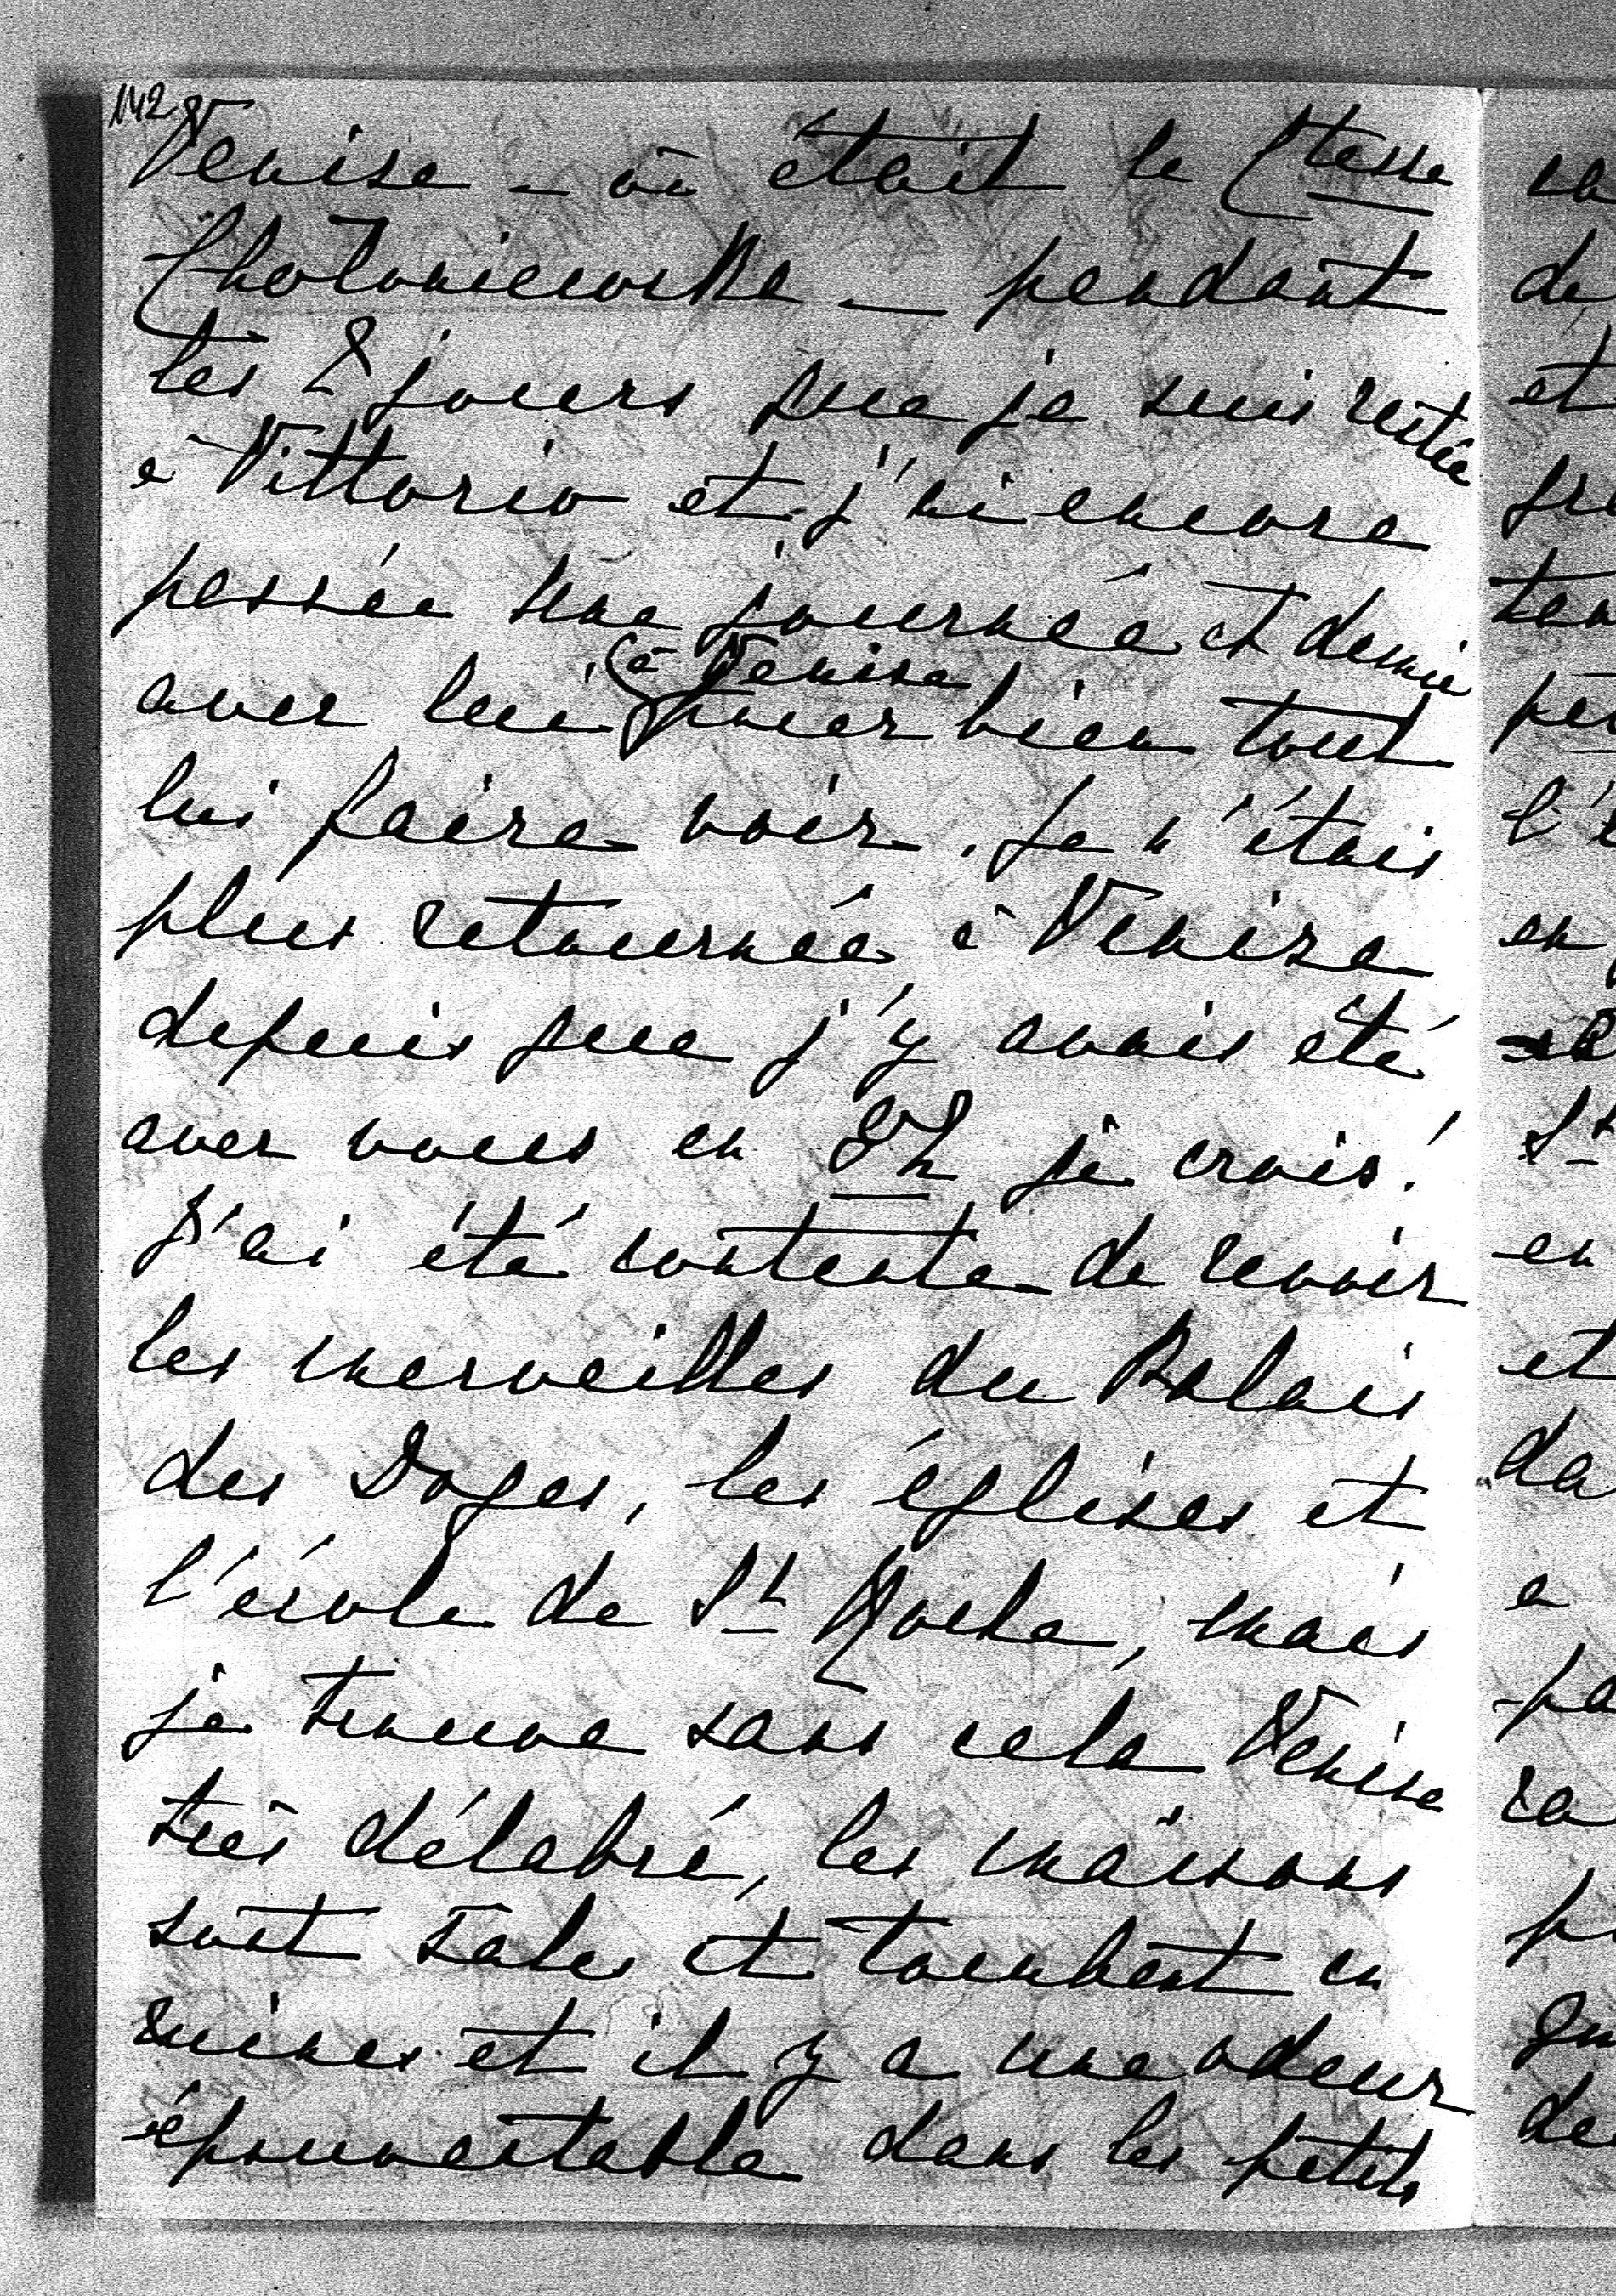 142
Venise – où était la Ctesse
Choloniewska – pendant
les 2 jours que je suis restée
à Vittorio et j'ai encore
passée une journée et demie
avec lui (à Venise) pour bien tout
lui faire voir. Je n'étais
plus retournée à Venise
depuis que j'y avais été
avec vous en 82 je crois!
J'ai été contente de revoir
les merveilles du Palais
des Doges, les églises et
l'école de St Roche, mais
je trouve sans cela Venise
très délabré, les maisons
sont sales et tombent en
ruines et il y a une odeur
épouvantable dans les petits